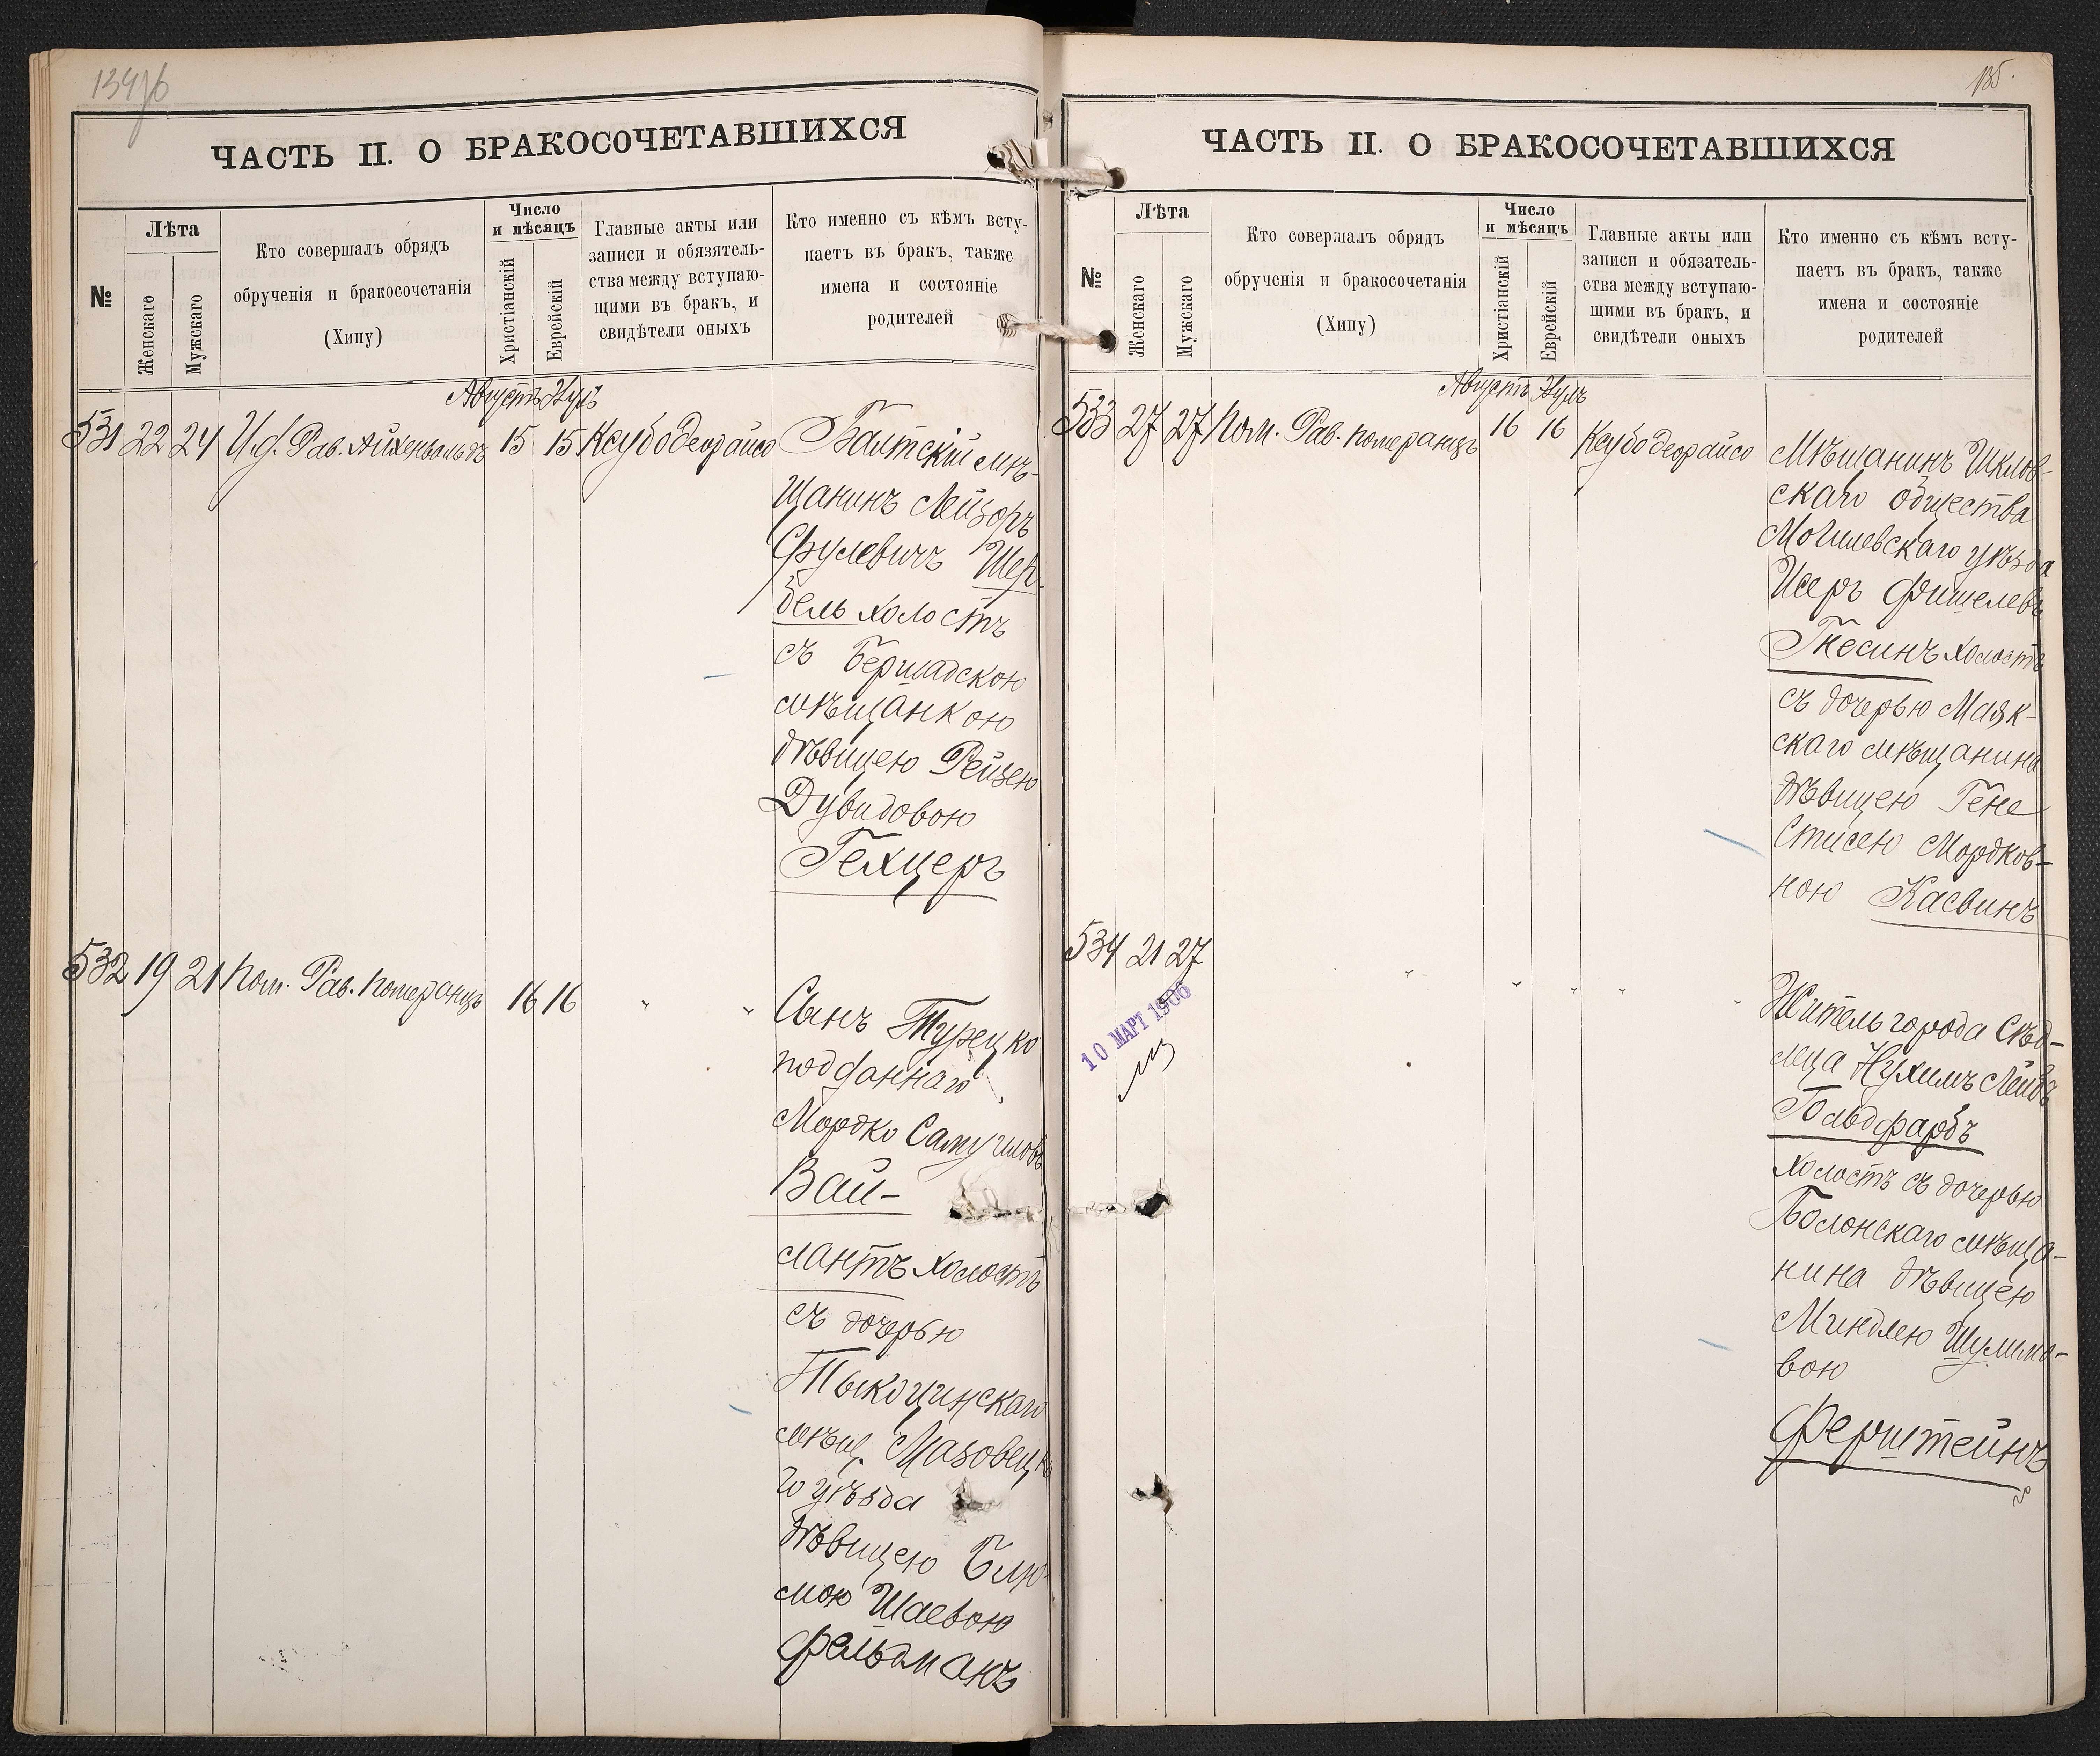 134
ЧАСТЬ II. О БРАКОСОЧЕТАВШИХСЯ
№
Лѣта
Женскаго
Мужскаго
Кто совершалъ обрядъ
обрученія и бракосочетанія
(Хипу)
Число
и мѣсяцъ
Христіанскій
Еврейскій
Главные акты или
записи и обязятель-
ства между вступаю-
щими въ бракъ, и
свидѣтели оныхъ
Кто именно съ кѣмъ всту-
паетъ въ бракъ, также
имена и состояніе
родителей
Августъ
531 22 24 И.д. Рав. Айхенвальдъ 15 15 Ксубо деорайсо
Балтскій мѣ-
щанинъ Лейзоръ
Сруlевичъ Шер-
бель холостъ
съ Бершадскою
мѣщанкою
дѣвицею Рейзею
Дувидовою
Гехцеръ
532 19 21 Пом. Рав. Померанцъ 16 16 " "
Сынъ Турецко
подданнаго
Мордко Самуиловъ
Вай-
лантъ холостъ
съ дочерью
Тыкоцинскаго
мѣщ. Мазовецка
го уѣзда
дѣвицею Блю-
мою Шаевою
Фельдманъ
135.
ЧАСТЬ II. О БРАКОСОЧЕТАВШИХСЯ
№
Лѣта
Женскаго
Мужскаго
Кто совершалъ обрядъ
обрученія и бракосочетанія
(Хипу)
Число
и мѣсяцъ
Христіанскій
Еврейскій
Главные акты или
записи и обязатель-
ства между вступаю-
щими въ бракъ, и
свидѣтели оныхъ
Кто именно съ кѣмъ всту-
паетъ въ бракъ, также
имена и состояніе
родителей
Августъ
533 27 27 Пом. Рав. Померанцъ 16 16 Ксубо деорайсо
Мѣщанинъ Шклов-
скаго общества
Могилевскаго уѣзда
Исеръ Фишелевъ
Гнесинъ холостъ
съ дочерью Маяк-
скаго мѣщанина
дѣвицею Гене
Стисею Мордков-
ною Касвинъ
534 21 27 " " " " "
10 МАРТ 1906
Житель города Сѣд-
леца Нухимъ Лейбъ
Гольдфарбъ
холостъ съ дочерью
Болонскаго мѣща-
нина дѣвицею
Миндлею Шулимо-
вою
Ферштейнъ